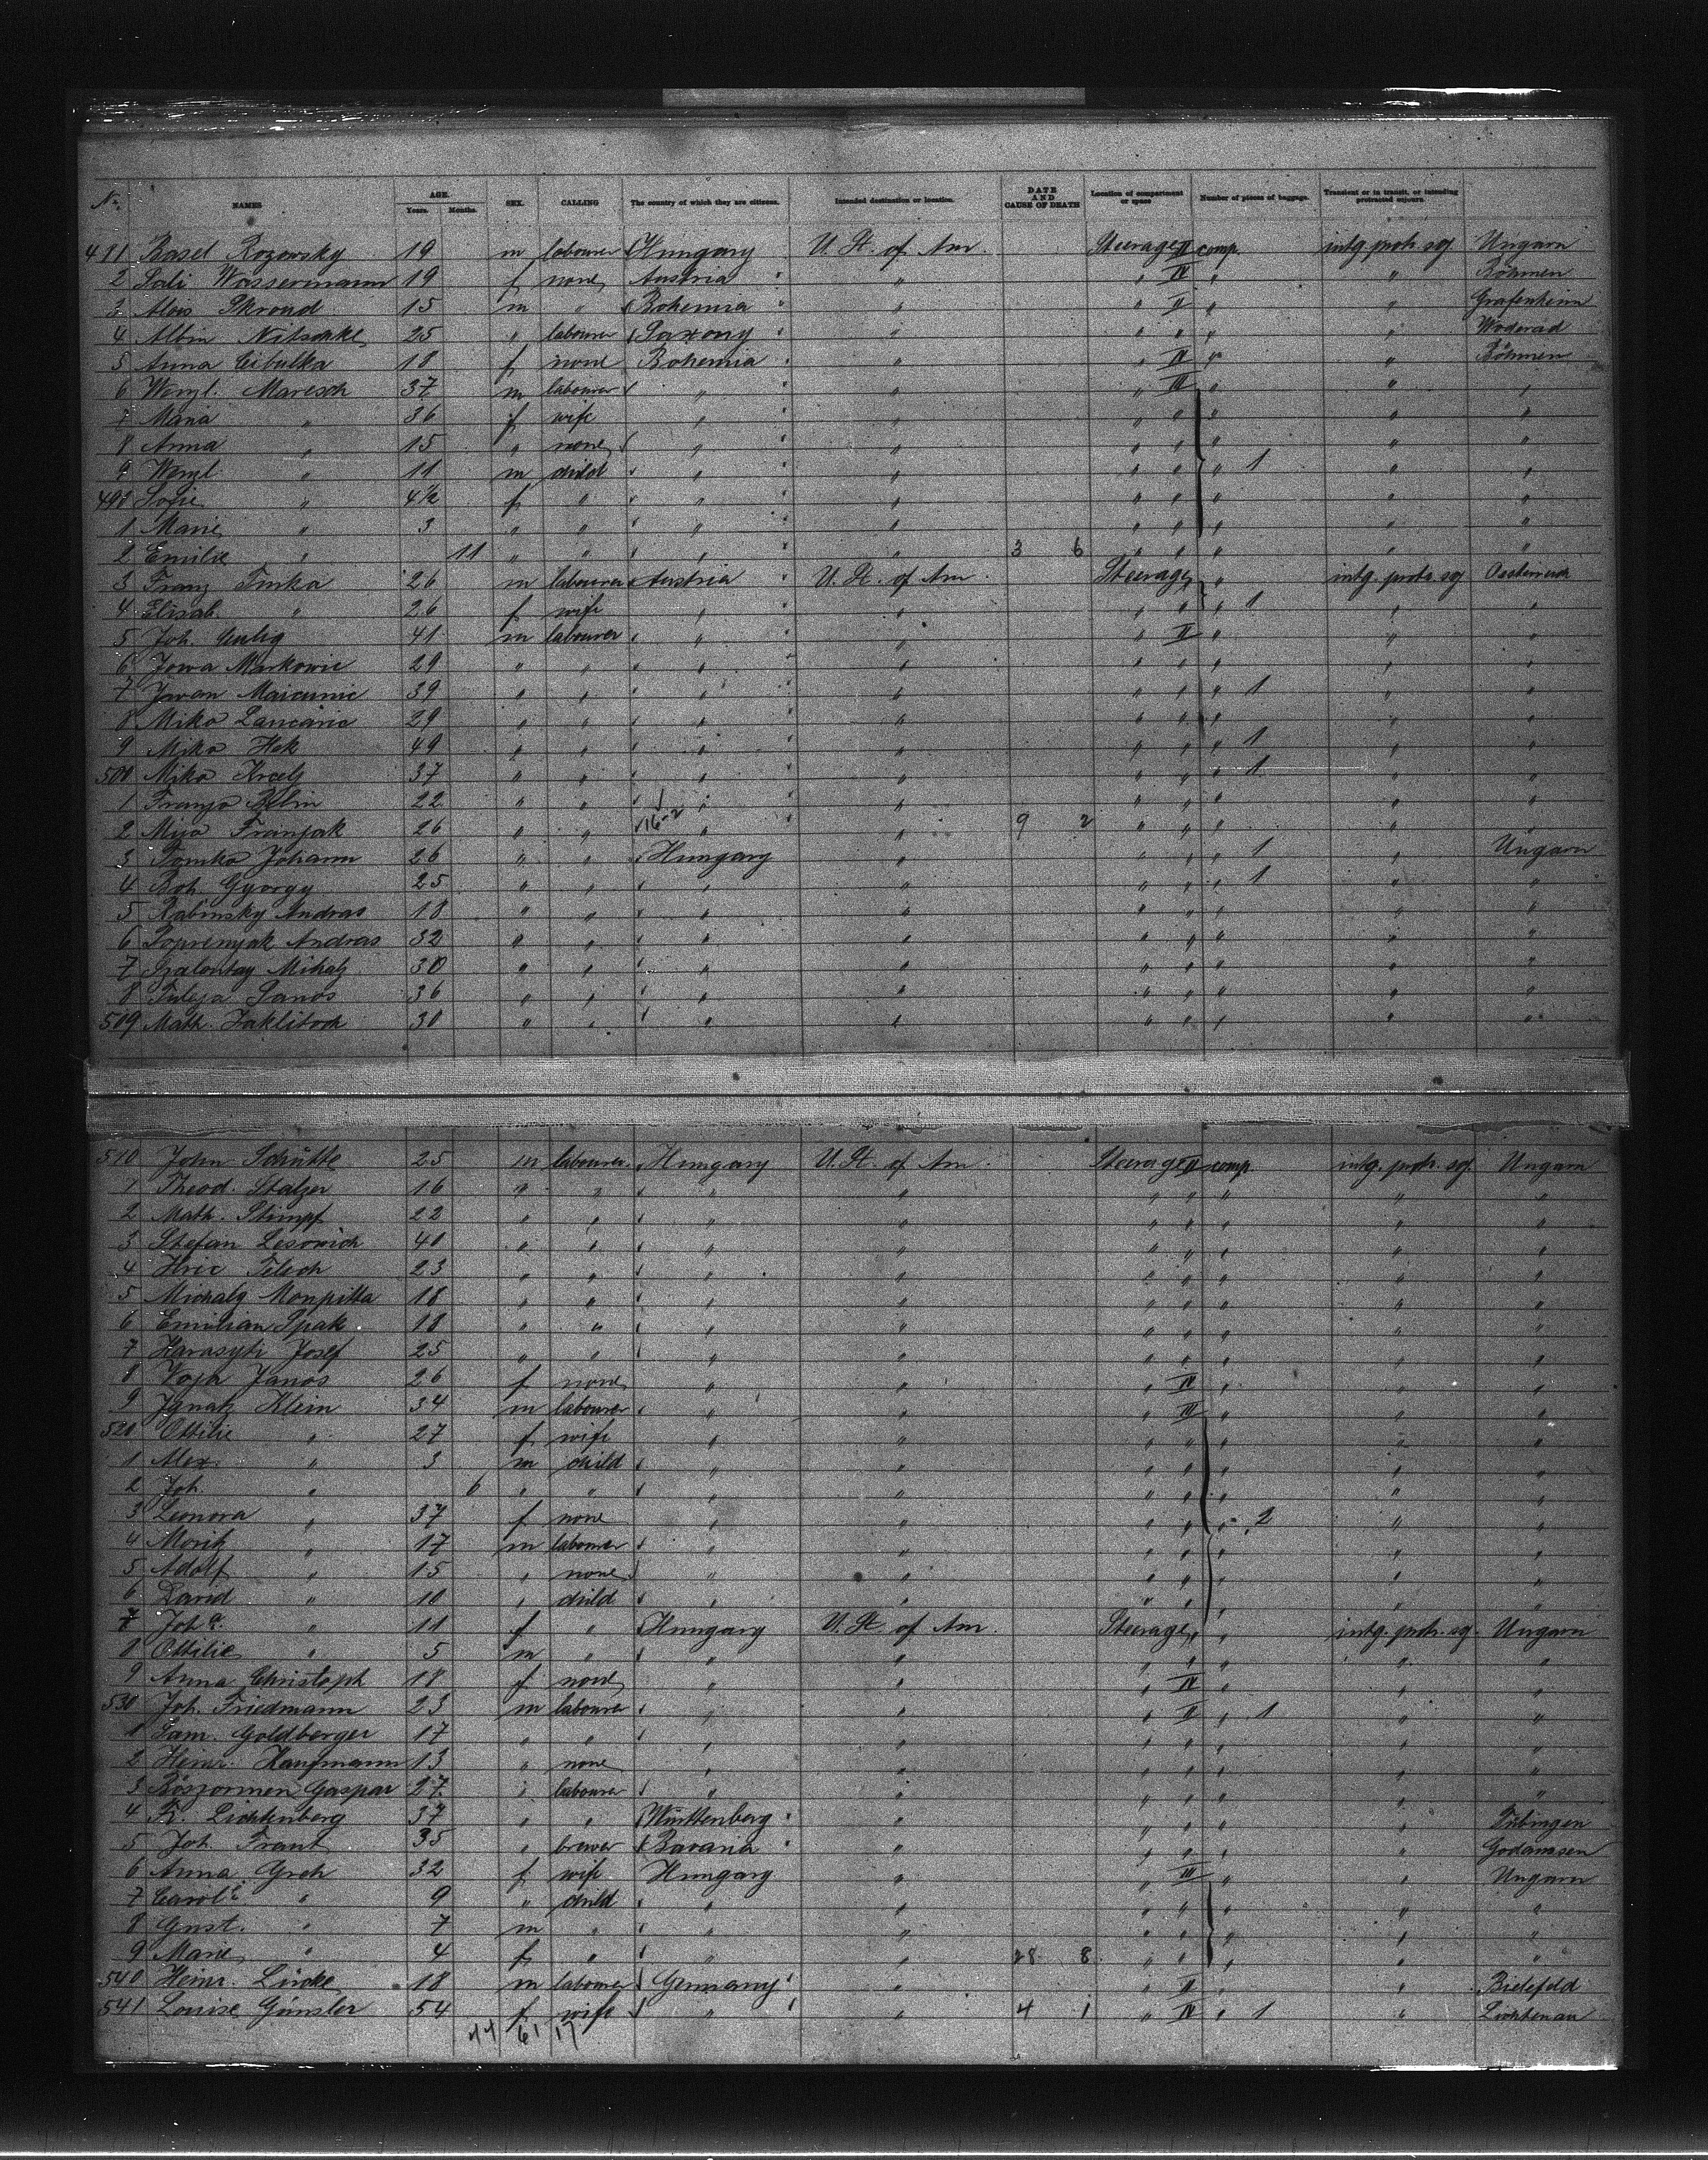 No. NAMES AGE. Years. Months. SEX. CALLING The country of which they are citizens. Intended destination or location. DATE AND CAUSE OF DEATH Location of compartment or space Number of pieces of baggage. Transient or in transit, or intending protracted sojourn.
481 Basel Rozowsky 19 m labourer Hungary U. St. of Am. Steerage II comp. intg. protr. soj Ungarn
2 Sali Wassermann 19 f none Austria " " IV " " Böhmen
3 Alois 15 m " Bohemia " " II " " Grafenheim
4 Albin 25 " labourer Saxony " " " " " Woderad
5 Anna Cibulka 18 f none Bohemia " " IV " " Böhmen
6 Wenzl. Maresch 37 m labourer " " " III " " "
7 Maria " 36 f wife " " " " " " "
8 Anna " 15 " none " " " " " " "
9 Wenzl " 11 m child " " " " " 1 " "
490 Sofie " 4½ f " " " " " " " "
1 Marie " 3 " " " " " " " " "
2 Emilie " 11 " " " " 3 6 " " " " "
3 Franz Finka 26 m labourer Austria U. St. of Am. Steerage " " intg. protr. soj Oesterreich
4 Elisab. " 26 f wife " " " " " 1 " "
5 Joh. 41 m labourer " " " II " " "
6 Jowa Markowic 29 " " " " " " " " "
7 Jwan Maicunic 39 " " " " " " " 1 " "
8 Miko 29 " " " " " " " " "
9 Miko Hek 49 " " " " " " " 1 " "
500 Miko 37 " " " " " " " 1 " "
1 Franjo 22 " " " " " " " " "
2 Mijo Franjak 26 " " 16-2 " " 9 2 " " " " "
3 Tomko Johann 26 " " Hungary " " " " 1 " Ungarn
4 Boh. György 25 " " " " " " " 1 " "
5 Rabinsky Andras 18 " " " " " " " " "
6 Poprenyak Andras 32 " " " " " " " " "
7 Szalontay Mihaly 30 " " " " " " " " "
8 Tuleja Janos 36 " " " " " " " " "
509 Math. Jaklitsch 30 " " " " " " " " "
510 John Schütte 25 m labourer Hungary U. St. of Am. Steerage II comp. intg. protr. soj Ungarn
1 Theod. Stalzer 16 " " " " " " " " "
2 Math. Stimpf 22 " " " " " " " " "
3 Stefan Lesowich 40 " " " " " " " " "
4 Hric Telech 23 " " " " " " " " "
5 Michaly Monpitta 18 " " " " " " " " "
6 Emilian Spak 18 " " " " " " " " "
7 Harasyti Josef 25 " " " " " " " " "
8 Janos 26 f none " " " IV " " "
9 Klein 34 m labourer " " " III " " "
520 Ottilie " 27 f wife " " " " " " "
1 Alex. " 3 m child " " " " " " "
2 Joh. " 6 " " " " " " " " "
3 Leonora " 37 f none " " " " " 2 " "
4 Moritz " 17 m labourer " " " " " " "
5 Adolf " 15 " none " " " " " " "
6 David " 10 " child " " " " " " "
7 Joh.a " 11 f " Hungary U. St. of Am. Steerage " " intg. protr. soj. Ungarn
8 Ottilie " 5 m " " " " " " " "
9 Anna Christoph 18 f none " " " IV " " "
530 Joh. Friedmann 23 m labourer " " " II " 1 " "
1 Sam. Goldberger 17 " " " " " " " " "
2 Heinr. Kaufmann 13 " none " " " " " " "
3 Böszormen Gaspar 27 " labourer " " " " " " "
4 Fr. Lichtenberg 37 " " Württenberg " " " " " Tübingen
5 Joh. Frant 35 " brewer Bavaria " " " " " Godamsen
6 Anna Groh 32 f wife Hungary " " III " " Ungarn
7 Carol.e " 9 " child " " " " " " "
8 Gust. " 7 m " " " " " " " "
9 Marie " 4 f " " " 28 8 " " " " "
540 Heinr. Lücke 18 m labourer Germany " " II " " Bielefeld
541 Louise Günsler 54 f wife " " 4 1 " IV " 1 " Lichtenau
44 61 17